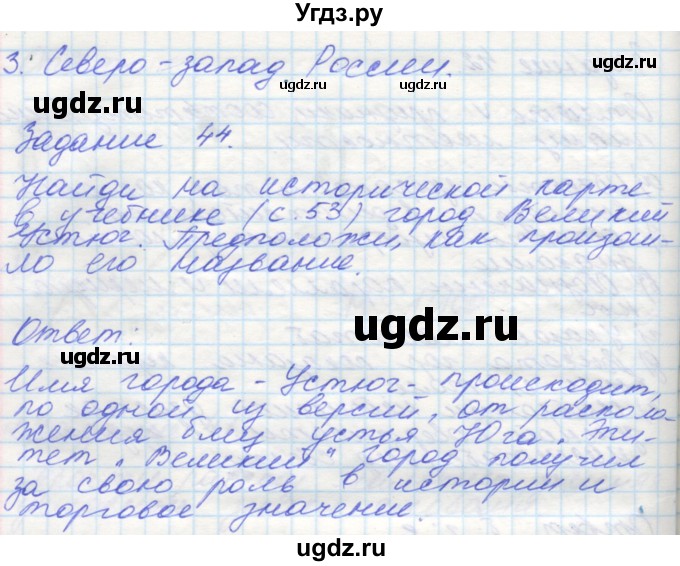 Угдз.ру
3. Северо-запад России.
ugdz.ru ugdz.ru ugdz.ru
Задание 44.
Найди на исторической карте
в учебнике (с.53) город Великий
Устюг. Предположи, как произош-
ugdz.ru ugdz.ru
ло его название.
Ответ:
ugdz.ru
ugdz.ru
Имя города - Устюг - происходит,
по одной из версий, от располо-
жения близ устья Юга. Эпи-
тет "Великий" город получил
ugdz.ru ugdz.ru
за свою роль в истории и
торговое значение.
ugdz.ru